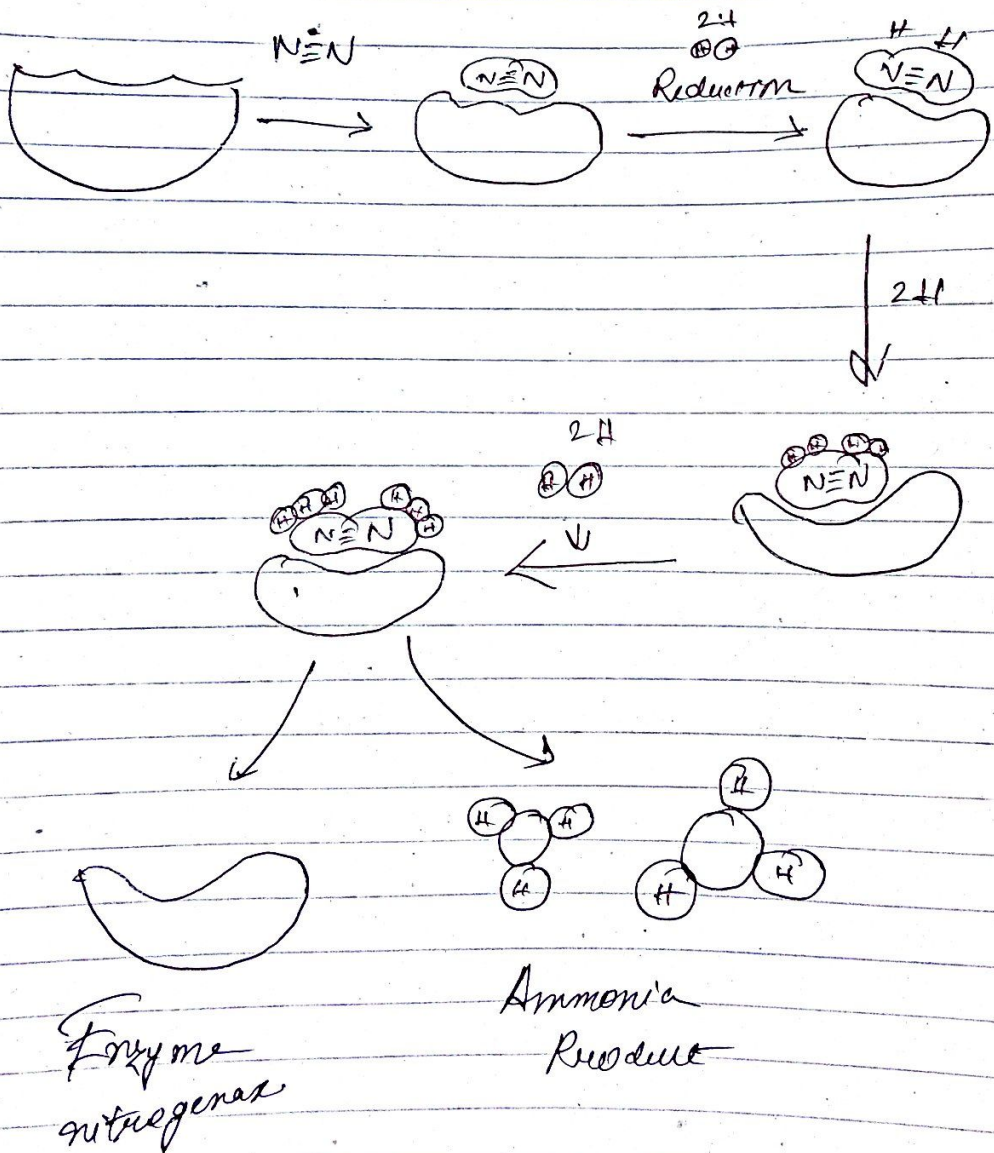 N≡N
2H
H H
Reduction
N≡N
H H
N≡N
2H
H H H H
N≡N
2H
H H
H H H H H H
N≡N
H H H
H H H
Enzyme
nitrogenax
Ammonia
Product